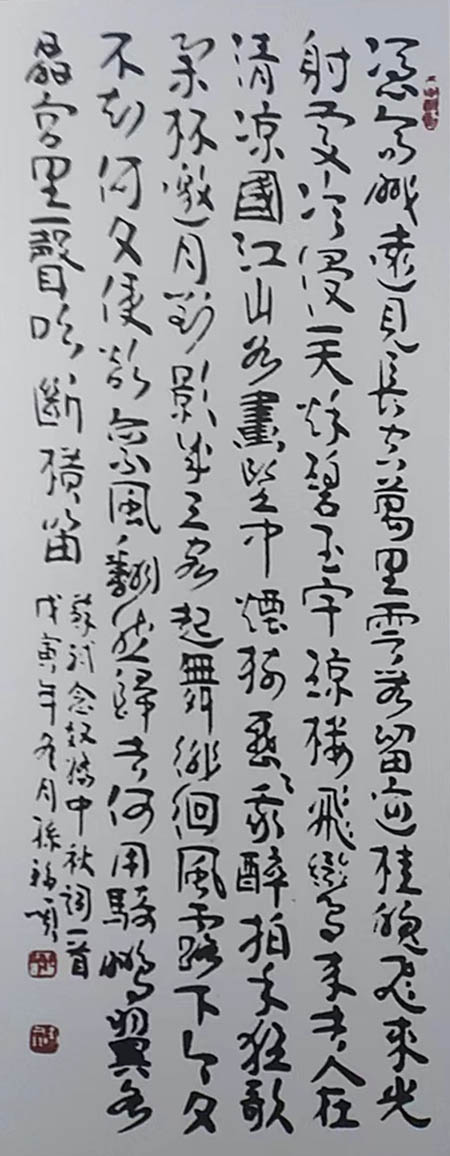 憑高眺遠見長空萬里雲無留迹桂魄飛來光
射處冷浸一天秋碧玉宇瓊樓飛鸞來去人在
清涼國江山如畫望中煙樹歷歷我醉拍手狂歌
舉杯邀月對影成三客起舞徘徊風露下今夕
不知何夕便欲乘風翻然歸去何用騎鵬翼水
晶宮里一聲吹斷橫笛
蘇軾念奴嬌中秋詞一首
戊寅年冬月孫